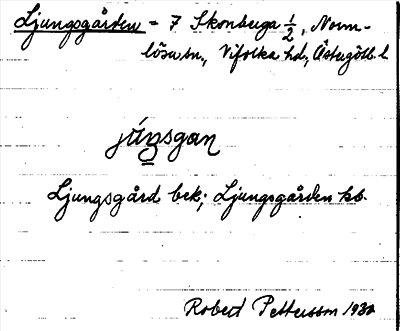 Ljungsgården = 7 Skonberga 1/2, Norrm-
lösa sn., Vifolka hd., Östergötl. l.
júŋsgan
Ljungsgård bek; Ljungsgården kb.
Robert Pettersson 1930